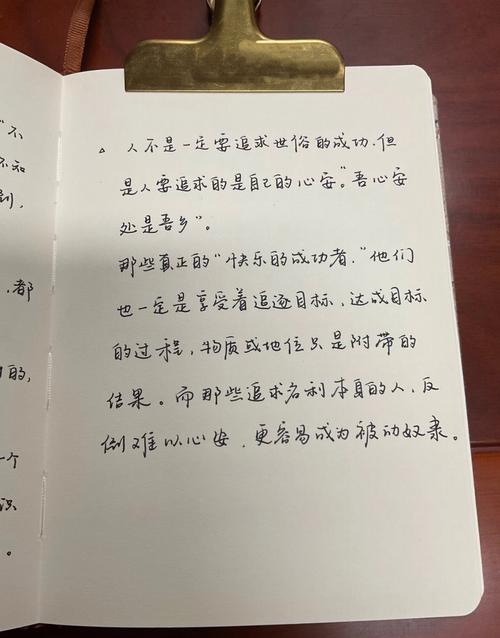 "不
不知
到,
,都
的,
一个
识
。
△ 人不是一定要追求世俗的成功.但
是人要追求的是自己的心安。"吾心安
处是吾乡"。
那些真正的"快乐的成功者,"他们
也一定是享受着追逐目标、达成目标
的过程,物质或地位只是附带的
结果。而那些追求名利本身的人、反
倒难以心安、更容易成为被动奴隶。